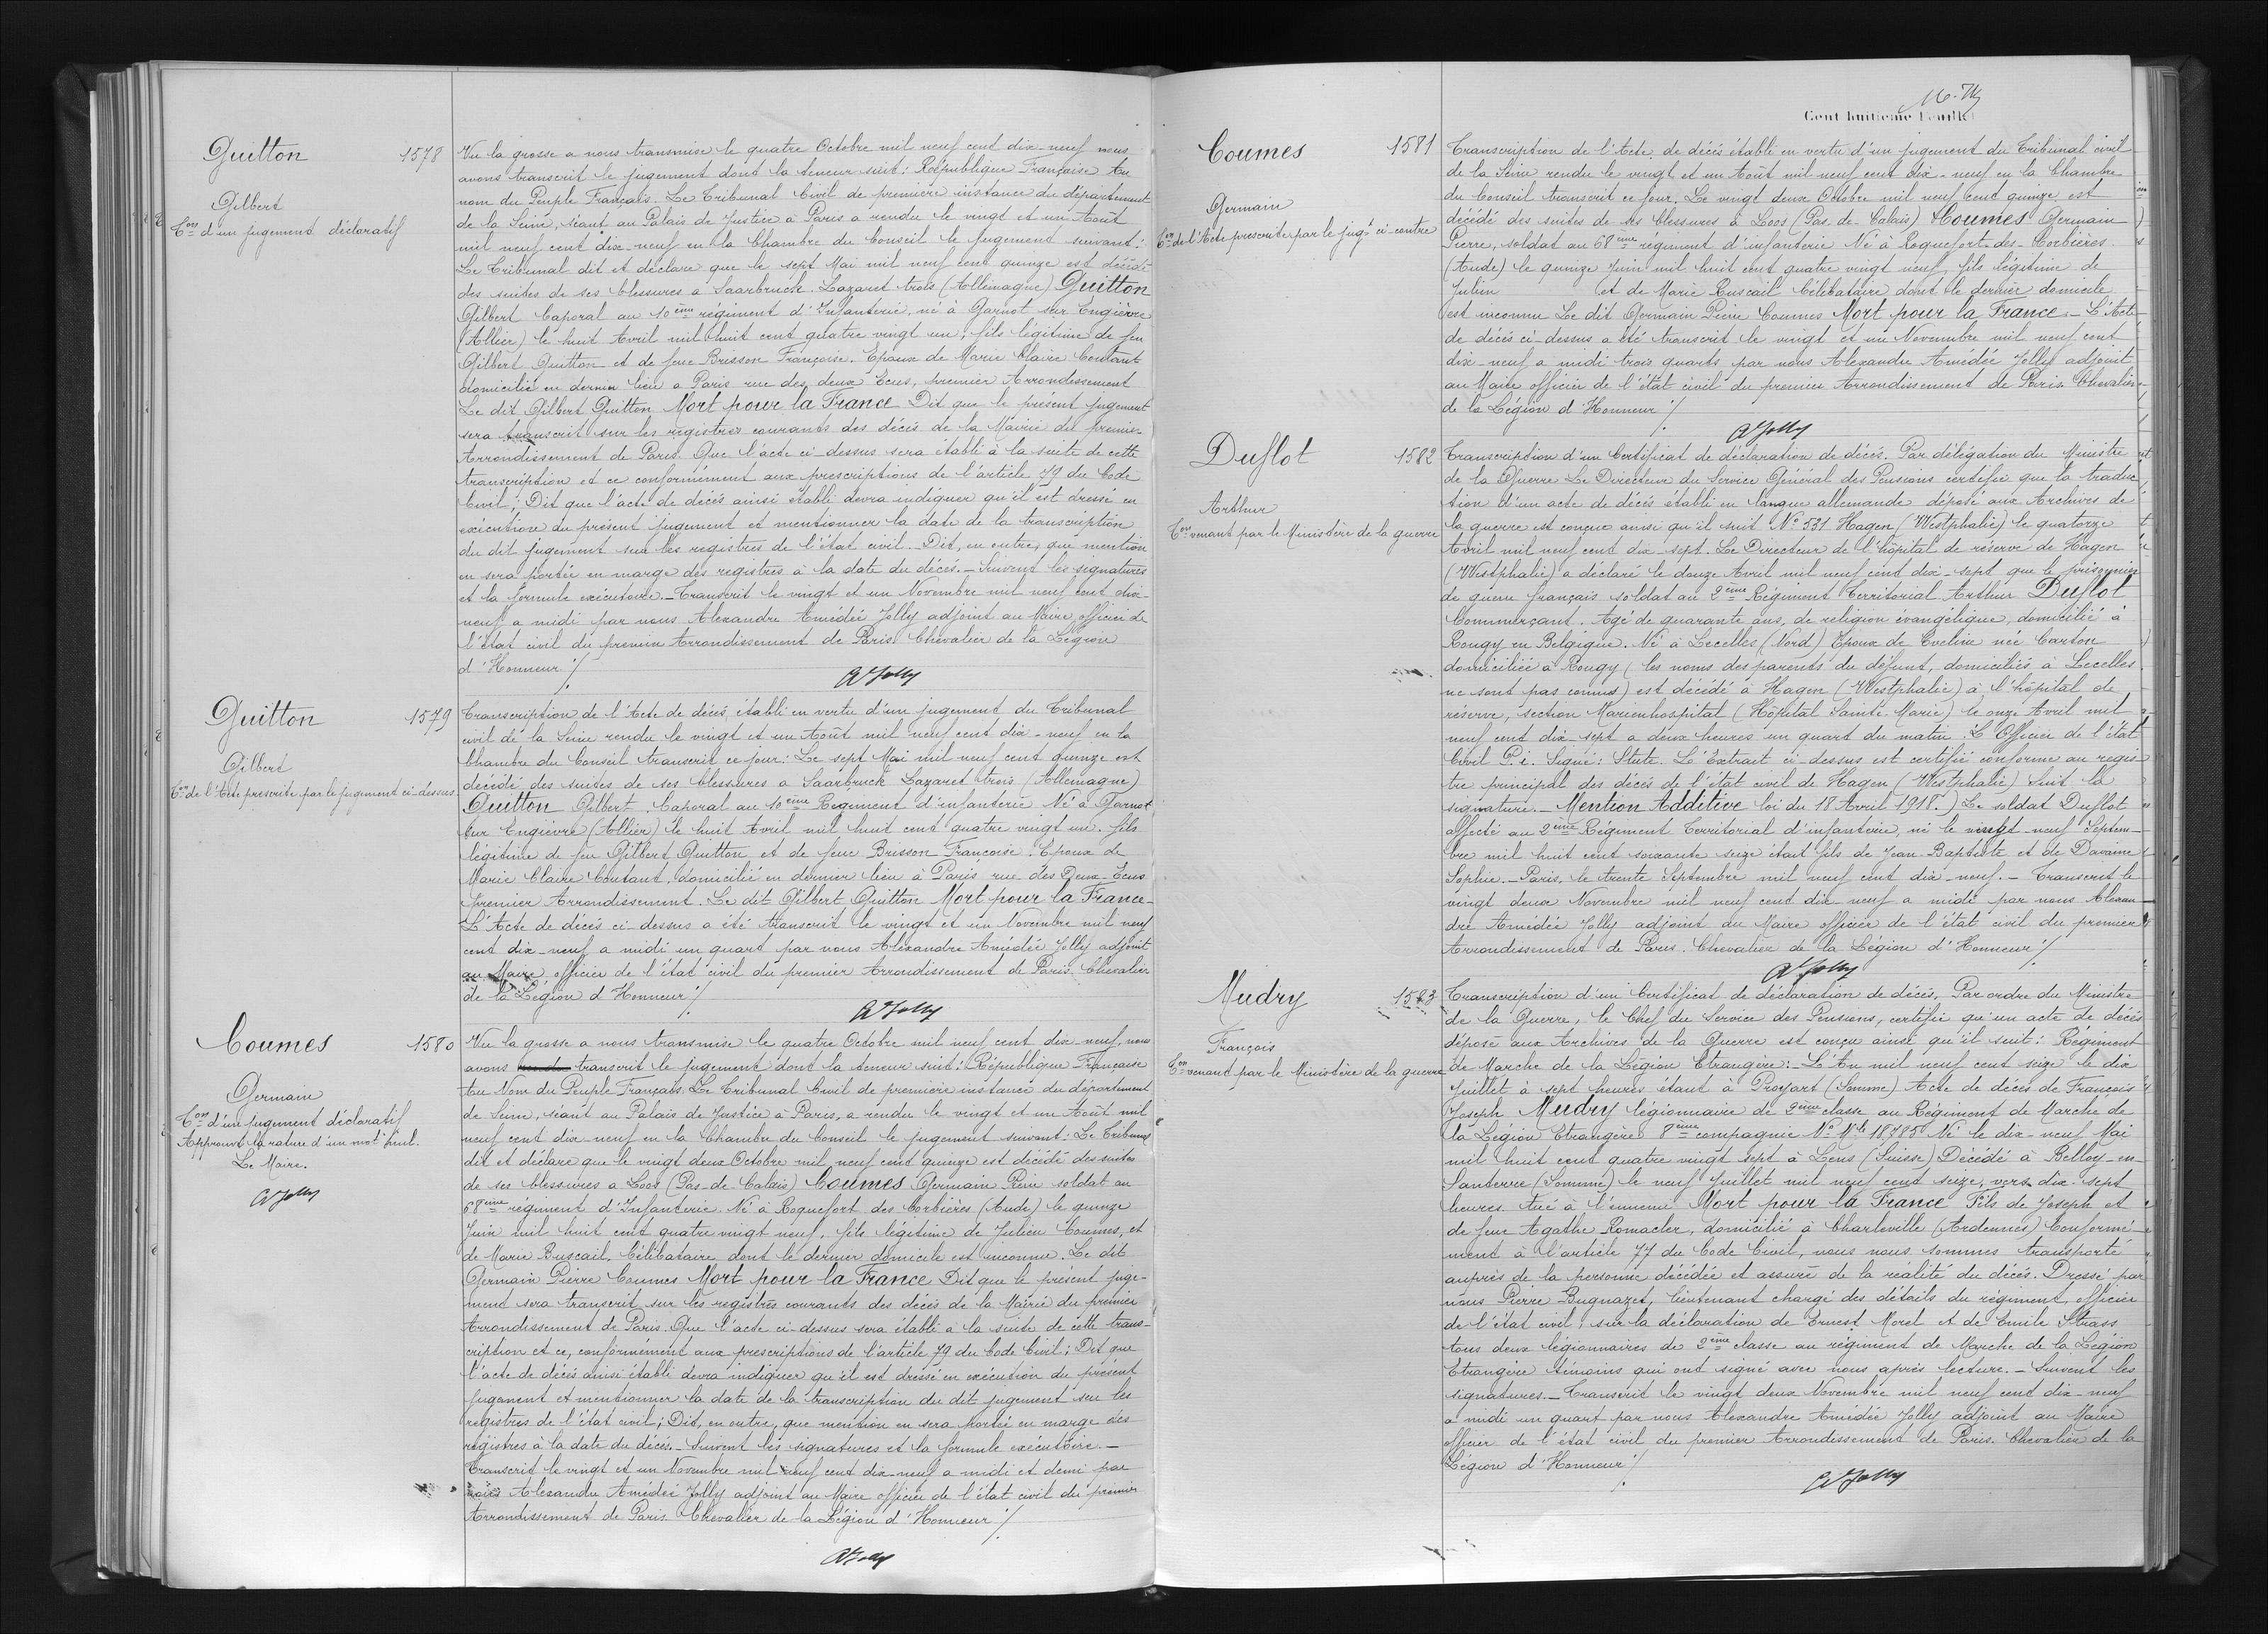 Guitton
1578
Gilbert
Con d'un jugement déclaratif
Vu la grosse a nous transmise le quatre Octobre mil neuf cent dix-neuf nous
avons transcrit le jugement dont la teneur suit: République Française Au
nom du Peuple Français. Le Tribunal Civil de première instance du département
de la Seine, séant au Palais de Justice à Paris a rendu le vingt et un Août
mil neuf cent dix-neuf en la Chambre du Conseil le jugement suivant:
Le Tribunal dit et déclare que le sept Mai mil neuf cent quinze est décédé
des suites de ses blessures a Saarbruck Lazaret trois (Allemagne) Guitton
Gilbert Caporal au 10ème régiment d'Infanterie, né à Garnot sur Engièvre
(Allier) le huit Avril mil huit cent quatre vingt un, fils légitime de feu
Gilbert Guitton et de feue Brisson Françoise. Epoux de Marie Claire Coutant
domicilié en dernier lieu a Paris rue des deux Ecus, premier Arrondissement
Le dit Gilbert Guitton Mort pour la France Dit que le présent jugement
sera transcrit sur les registres courants des décès de la Mairie du premier
Arrondissement de Paris. Que l'acte ci-dessus sera établi à la suite de cette
transcription et ce conformément aux prescriptions de l'article 79 du Code
Civil; Dit que l'acte de décès ainsi établi devra indiquer qu'il est dressé en
exécution du présent jugement et mentionner la date de la transcription
du dit jugement sur les registres de l'état civil. Dit, en outre, que mention
en sera portée en marge des registres à la date du décès. - Suivent les signatures
et la formule exécutoire. - Transcrit le vingt et un Novembre mil neuf cent dix-
neuf a midi par nous Alexandre Amédée Jolly adjoint au Maire officier de
l'état civil du premier Arrondissement de Paris. Chevalier de la Légion
d'Honneur ./.
A Jolly
Guitton
1579
Gilbert
Con de l'Acte prescrite par le jugement ci-dessus
Transcription de l'Acte de décès établi en vertu d'un jugement du Tribunal
civil de la Seine rendu le vingt et un Août mil neuf cent dix-neuf en la
Chambre du Conseil transcrit ce jour: Le sept Mai mil neuf cent quinze est
décédé des suites de ses blessures a Saarbruck Lazaret trois (Allemagne)
Guitton Gilbert, Caporal au 10ème Régiment d'infanterie Né à Garnot
sur Engièvre (Allier) le huit Avril mil huit cent quatre vingt un. fils
légitime de feu Gilbert Guitton et de feue Brisson Françoise. Epoux de
Marie Claire Coutant, domicilié en dernier lieu à Paris rue des Deux-Ecus
premier Arrondissement. Le dit Gilbert Guitton Mort pour la France-
L'Acte de décès ci-dessus a été transcrit le vingt et un Novembre mil neuf
cent dix-neuf a midi un quart par nous Alexandre Amédée Jolly adjoint
au Maire officier de l'état civil du premier Arrondissement de Paris. Chevalier
de la Légion d'Honneur ./.
A Jolly
Coumes
1580
Germain
Con d'un jugement déclaratif
Approuvé la rature d'un mot nul.
Le Maire.
A Jolly
Vu la grosse a nous transmise le quatre Octobre mil neuf cent dix-neuf, nous
avons transcrit le jugement dont la teneur suit: République Française
Au Nom du Peuple Français. Le Tribunal Civil de première instance du département
de Seine, séant au Palais de Justice à Paris, a rendu le vingt et un Août mil
neuf cent dix-neuf en la Chambre du Conseil le jugement suivant: Le Tribunal
dit et déclare que le vingt deux Octobre mil neuf cent quinze est décédé des suites
de ses blessures a Loos (Pas-de-Calais) Coumes Germain Pierre soldat au
68ème régiment d'Infanterie. Né à Roquefort des Corbières (Aude) le quinze
Juin mil huit cent quatre vingt neuf, fils légitime de Julien Coumes, et
de Marie Buscail. Célibataire dont le dernier domicile est inconnu. Le dit
Germain Pierre Coumes Mort pour la France Dit que le présent juge-
ment sera transcrit sur les registres courants des décès de la Mairie du premier
Arrondissement de Paris. Que l'acte ci-dessus sera établi à la suite de cette trans-
cription et ce, conformément aux prescriptions de l'article 79 du Code Civil; Dit que
l'acte de décès ainsi établi devra indiquer qu'il est dressé en exécution du présent
jugement et mentionner la date de la transcription du dit jugement sur les
registres de l'état civil; Dit, en outre, que mention en sera portée en marge des
registres à la date du décès. - Suivent les signatures et la formule exécutoire. -
Transcrit le vingt et un Novembre mil neuf cent dix-neuf a midi et demi par
nous Alexandre Amédée Jolly adjoint au Maire officier de l'état civil du premier
Arrondissement de Paris. Chevalier de la Légion d'Honneur ./.
A Jolly
Cent huitième Feuillet
Coumes
1581
Germain
Con de l'Acte prescrite par le jugt ci-contre
Transcription de l'Acte de décès établi en vertu d'un jugement du Tribunal civil
de la Seine rendu le vingt et un Août mil neuf cent dix-neuf en la Chambre
du Conseil transcrit ce jour. Le vingt deux Octobre mil neuf cent quinze est
décédé des suites de ses blessures à Loos (Pas-de-Calais) Coumes Germain
Pierre, soldat au 68ème régiment d'infanterie Né à Roquefort-des-Corbières
(Aude) le quinze Juin mil huit cent quatre vingt neuf, fils légitime de
Julien et de Marie Buscail Célibataire dont le dernier domicile
est inconnu Le dit Germain Pierre Coumes Mort pour la France. - L'Acte
de décès ci-dessus a été transcrit le vingt et un Novembre mil neuf cent
dix-neuf a midi trois quarts par nous Alexandre Amédée Jolly adjoint
au Maire officier de l'état civil du premier Arrondissement de Paris. Chevalier
de la Légion d'Honneur ./.
A Jolly
Duflot
1582
Arthur
Con venant par le Ministère de la guerre
Transcription d'un Certificat de déclaration de décès. Par délégation du Ministre
de la Guerre Le Directeur du Service Général des Pensions certifie que la traduc
tion d'un acte de décès établi en langue allemande déposé aux Archives de
la guerre est conçue ainsi qu'il suit No 531 Hagen (Westphalie) le quatorze
Avril mil neuf cent dix-sept. Le Directeur de l'hôpital de réserve de Hagen
(Westphalie) a déclaré le douze Avril mil neuf cent dix-sept que le prisonnier
de guerre français soldat au 2ème Régiment Territorial Arthur Duflot
Commerçant. Agé de quarante ans, de religion évangélique, domicilié à
Rongy en Belgique. Né à Lecelles (Nord) Epoux de Eveline née Carton
domiciliée à Rongy (les noms des parents du défunt, domiciliés à Lecelles
ne sont pas connus) est décédé à Hagen (Westphalie) à l'hôpital de
réserve, section Marienhospital (Hôpital Sainte-Marie) le onze Avril mil
neuf cent dix-sept a deux heures un quart du matin. L'Officier de l'état
Civil P.i. Signé: Stute. L'Extrait ci-dessus est certifié conforme au regis
tre principal des décès de l'état civil de Hagen (Westphalie) Suit la
signature. - Mention Additive loi du 18 Avril 1918.) Le soldat Duflot
affecté au 2ème Régiment Territorial d'infanterie, né le vingt-neuf Septem-
bre mil huit cent soixante seize était fils de Jean-Baptiste et de Davaine
Sophie. - Paris, le trente Septembre mil neuf cent dix-neuf. - Transcrit le
vingt deux Novembre mil neuf cent dix-neuf a midi par nous Alexan-
dre Amédée Jolly adjoint au Maire officier de l'état civil du premier
Arrondissement de Paris. Chevalier de la Légion d'Honneur ./.
A Jolly
Mudry
1583
François
Con venant par le Ministère de la guerre
Transcription d'un Certificat de déclaration de décès. Par ordre du Ministre
de la Guerre, le Chef du Service des Pensions, certifie qu'un acte de décès
déposé aux Archives de la Guerre est conçu ainsi qu'il suit: Régiment
de Marche de la Légion Etrangère: L'An mil neuf cent seize le dix
Juillet à sept heures étant à Proyart (Somme) Acte de décès de François
Joseph Mudry légionnaire de 2ème classe au Régiment de Marche de
la Légion Etrangère 8ème compagnie No Mle 18785 Né le dix-neuf Mai
mil huit cent quatre vingt sept à Lens (Suisse) Décédé à Belloy-en-
Santerre (Somme) le neuf Juillet mil neuf cent seize, vers dix-sept
heures. tué à l'ennemi Mort pour la France Fils de Joseph et
de feue Agathe Romacler, domicilié à Charleville (Ardennes) Conformé-
ment à l'article 77 du Code Civil, nous nous sommes transporté
auprès de la personne décédée et assuré de la réalité du décès. Dressé par
nous Pierre Bugnazet, lieutenant chargé des détails du régiment, officier
de l'état civil, sur la déclaration de Ernest Morel et de Emile Strass
tous deux légionnaires de 2ème classe au régiment de Marche de la Légion
Etrangère témoins qui ont signé avec nous après lecture. - Suivent les
signatures. - Transcrit le vingt deux Novembre mil neuf cent dix-neuf
a midi un quart par nous Alexandre Amédée Jolly adjoint au Maire
officier de l'état civil du premier Arrondissement de Paris. Chevalier de la
Légion d'Honneur ./.
A Jolly